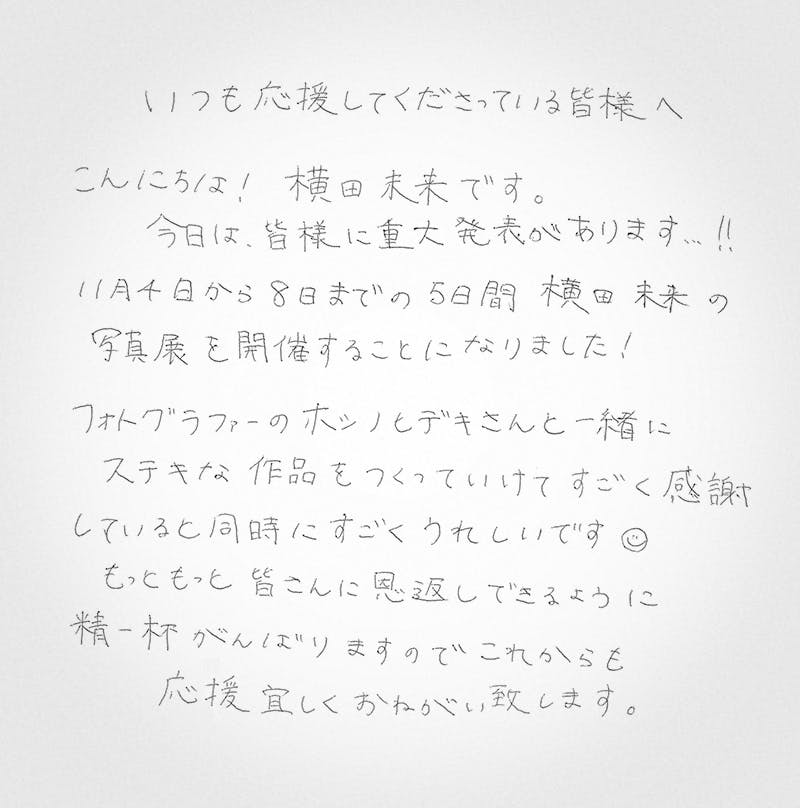 いつも応援してくださっている皆様へ
こんにちは! 横田未来です。
今日は、皆様に重大発表があります…!!
11月4日から8日までの5日間 横田未来の
写真展を開催することになりました!
フォトグラファーのホシノヒデキさんと一緒に
ステキな作品をつくっていけてすごく感謝
していると同時にすごくうれしいです☺
もっともっと皆さんに恩返しできるように
精一杯がんばりますのでこれからも
応援宜しくおねがい致します。